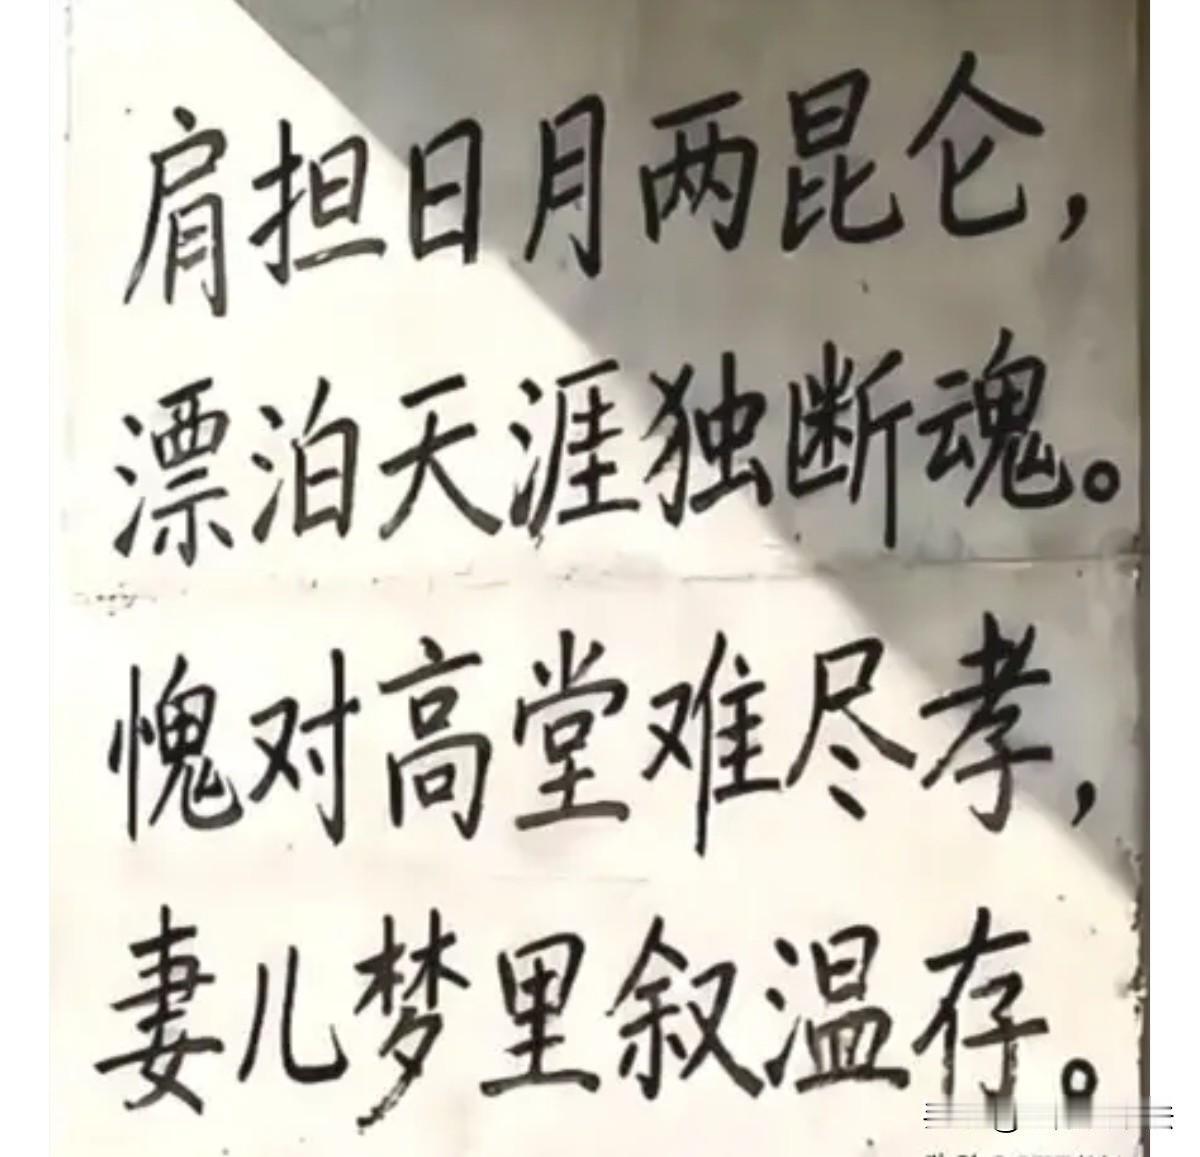 肩担日月两昆仑，
漂泊天涯独断魂。
愧对高堂难尽孝，
妻儿梦里叙温存。